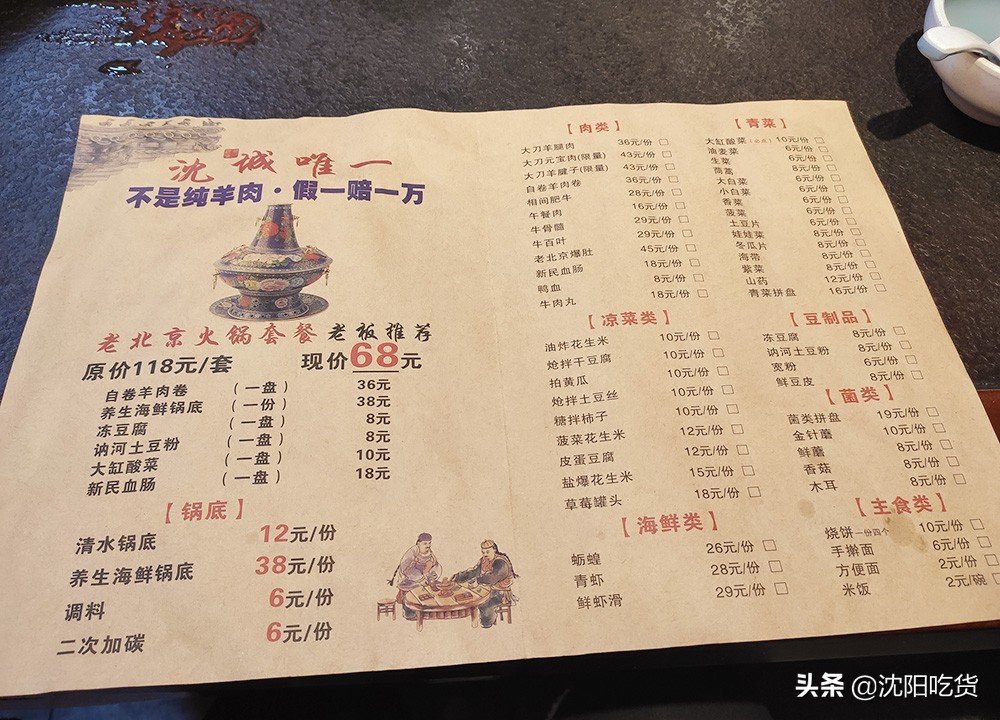 沈诚唯一
不是纯羊肉·假一赔一万
老北京火锅套餐 老板推荐
原价118元/套 现价68元
自卷羊肉卷 (一盘) 36元
养生海鲜锅底 (一份) 38元
冻豆腐 (一盘) 8元
讷河土豆粉 (一盘) 8元
大缸酸菜 (一盘) 10元
新民血肠 (一盘) 18元
【锅底】
清水锅底 12元/份
养生海鲜锅底 38元/份
调料 6元/份
二次加碳 6元/份
【肉类】
大刀羊腿肉 36元/份
大刀元宝肉(限量) 43元/份
大刀羊腱子(限量) 43元/份
自卷羊肉卷 36元/份
相间肥牛 28元/份
午餐肉 16元/份
牛骨髓 29元/份
牛百叶 29元/份
老北京爆肚 45元/份
新民血肠 18元/份
鸭血 8元/份
牛肉丸 18元/份
【凉菜类】
油炸花生米 10元/份
炝拌干豆腐 10元/份
拍黄瓜 10元/份
炝拌土豆丝 10元/份
糖拌柿子 10元/份
菠菜花生米 12元/份
皮蛋豆腐 12元/份
盐爆花生米 15元/份
草莓罐头 18元/份
【海鲜类】
蛎蝗 26元/份
青虾 28元/份
鲜虾滑 29元/份
【青菜】
大缸酸菜 10元/份
油麦菜 6元/份
生菜 6元/份
茼蒿 8元/份
大白菜 6元/份
小白菜 6元/份
香菜 6元/份
菠菜 6元/份
土豆片 6元/份
娃娃菜 8元/份
冬瓜片 8元/份
海带 8元/份
紫菜 8元/份
山药 12元/份
青菜拼盘 16元/份
【豆制品】
冻豆腐 8元/份
讷河土豆粉 8元/份
宽粉 6元/份
鲜豆皮 8元/份
【菌类】
菌类拼盘 19元/份
金针蘑 10元/份
鲜蘑 8元/份
香菇 8元/份
木耳 8元/份
【主食类】
烧饼一份四个 10元/份
手擀面 6元/份
方便面 2元/份
米饭 2元/碗
头条 @沈阳吃货